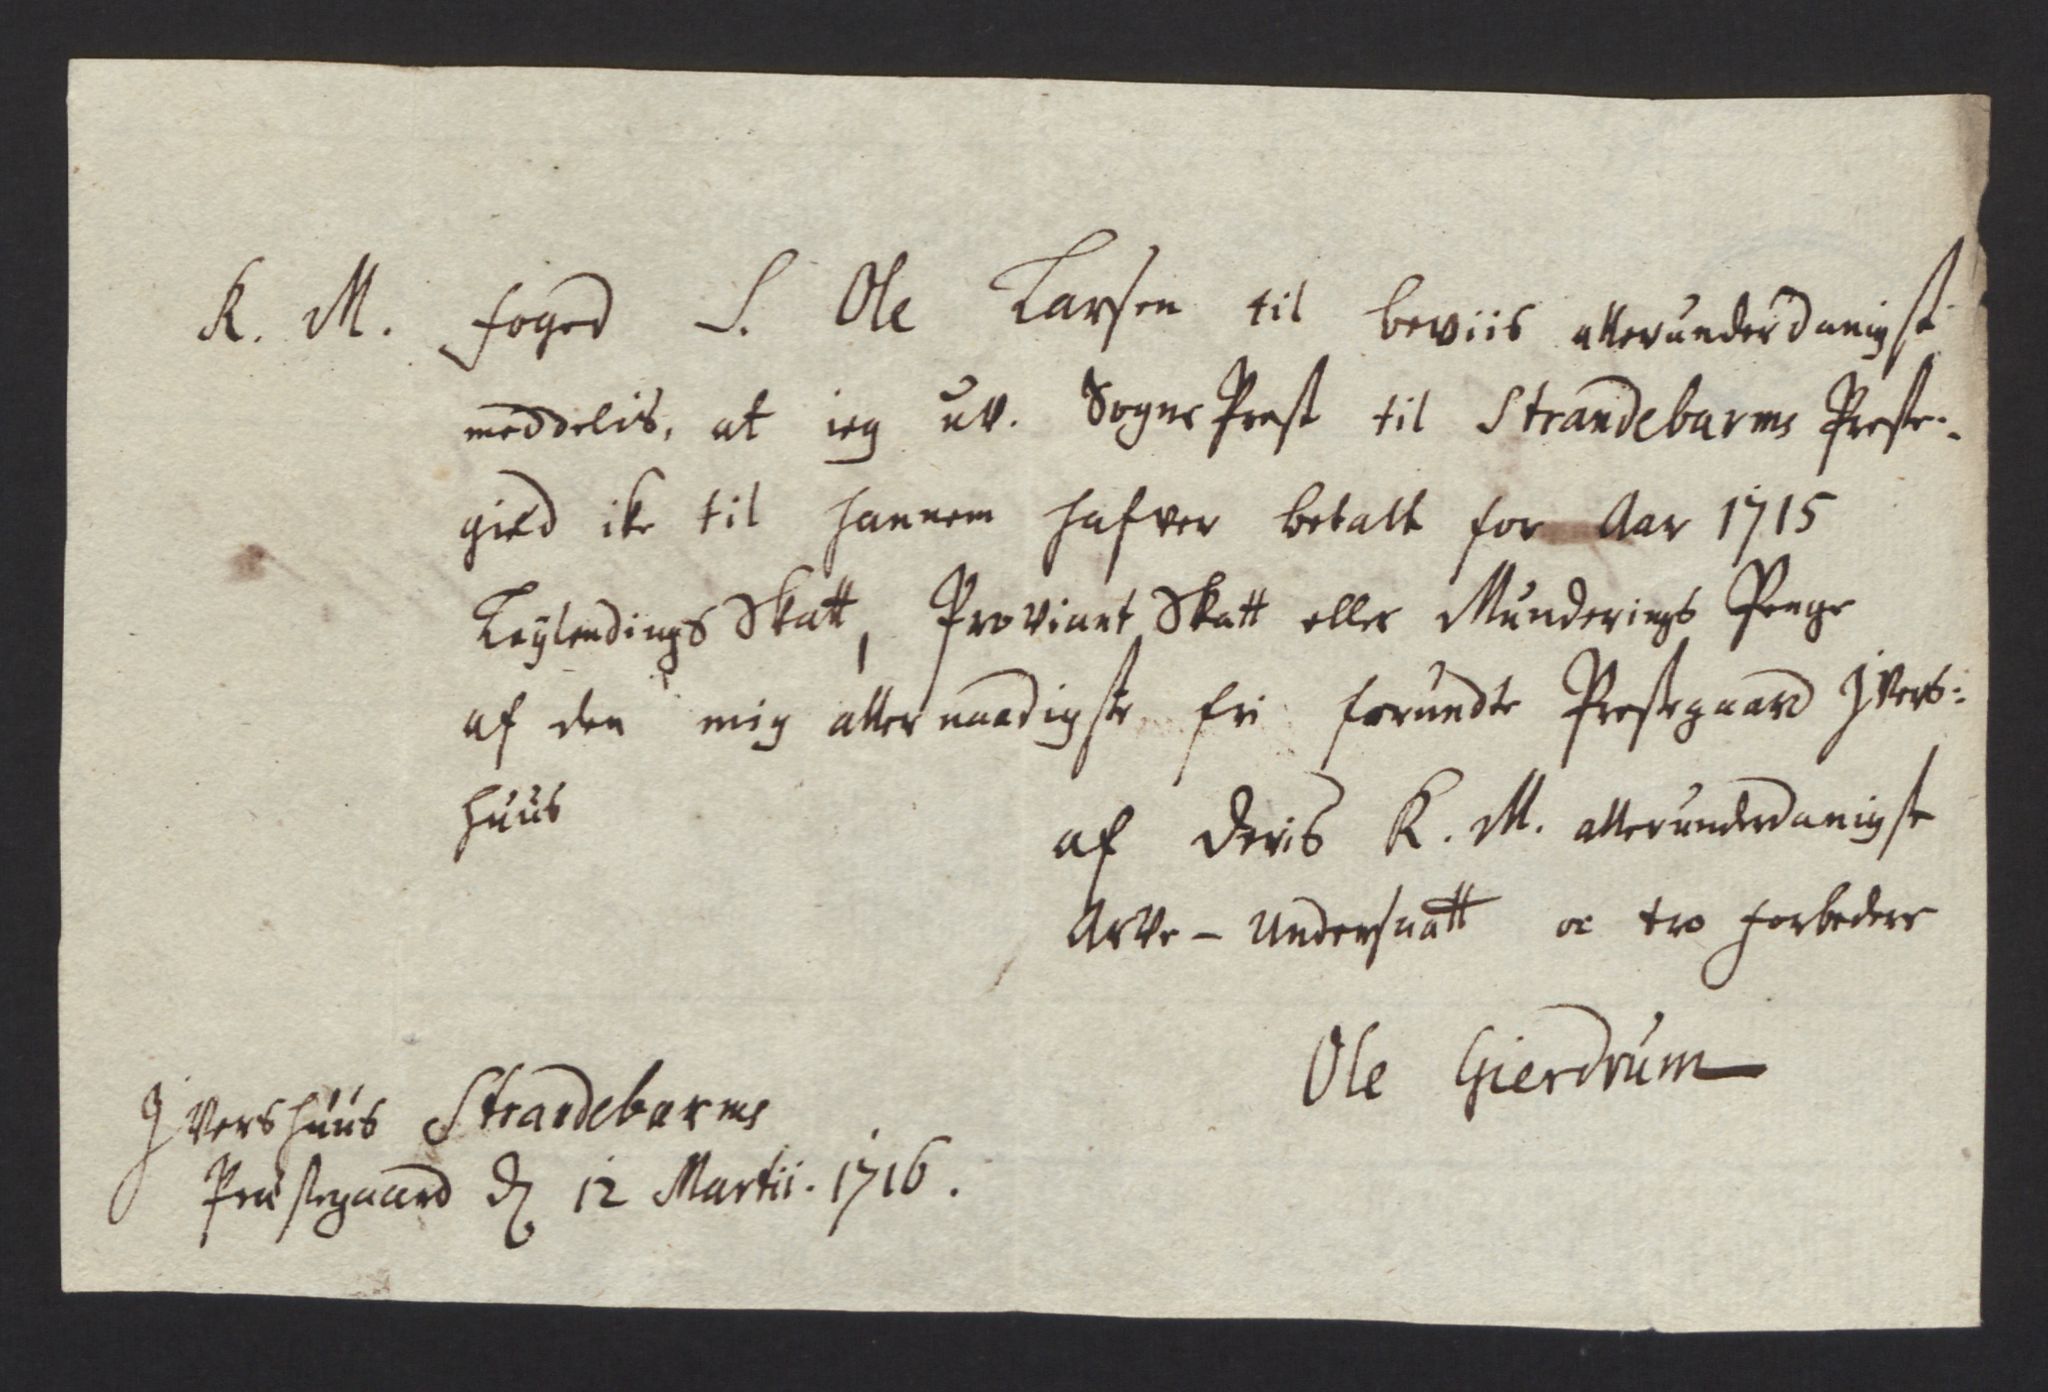 K. M. foged S. Ole Larsen til beviis allerunderdanigst
meddelis, at ieg uv. Sogne Prest til Strandebarms Preste-
gield ike til hannem hafver betalt for Aar 1715
Leylendings Skatt, Proviant Skatt eller Munderings Penge
af den mig allernaadigste fri forundte Prestegaard Jvers-
huus
af Deris K. M. allerunderdanigste
Arve - Undersaatt oc tro forbedere
Ole Gierdrum
Jvershuus Strandebarms
Præstegaard d. 12 Martii. 1716.